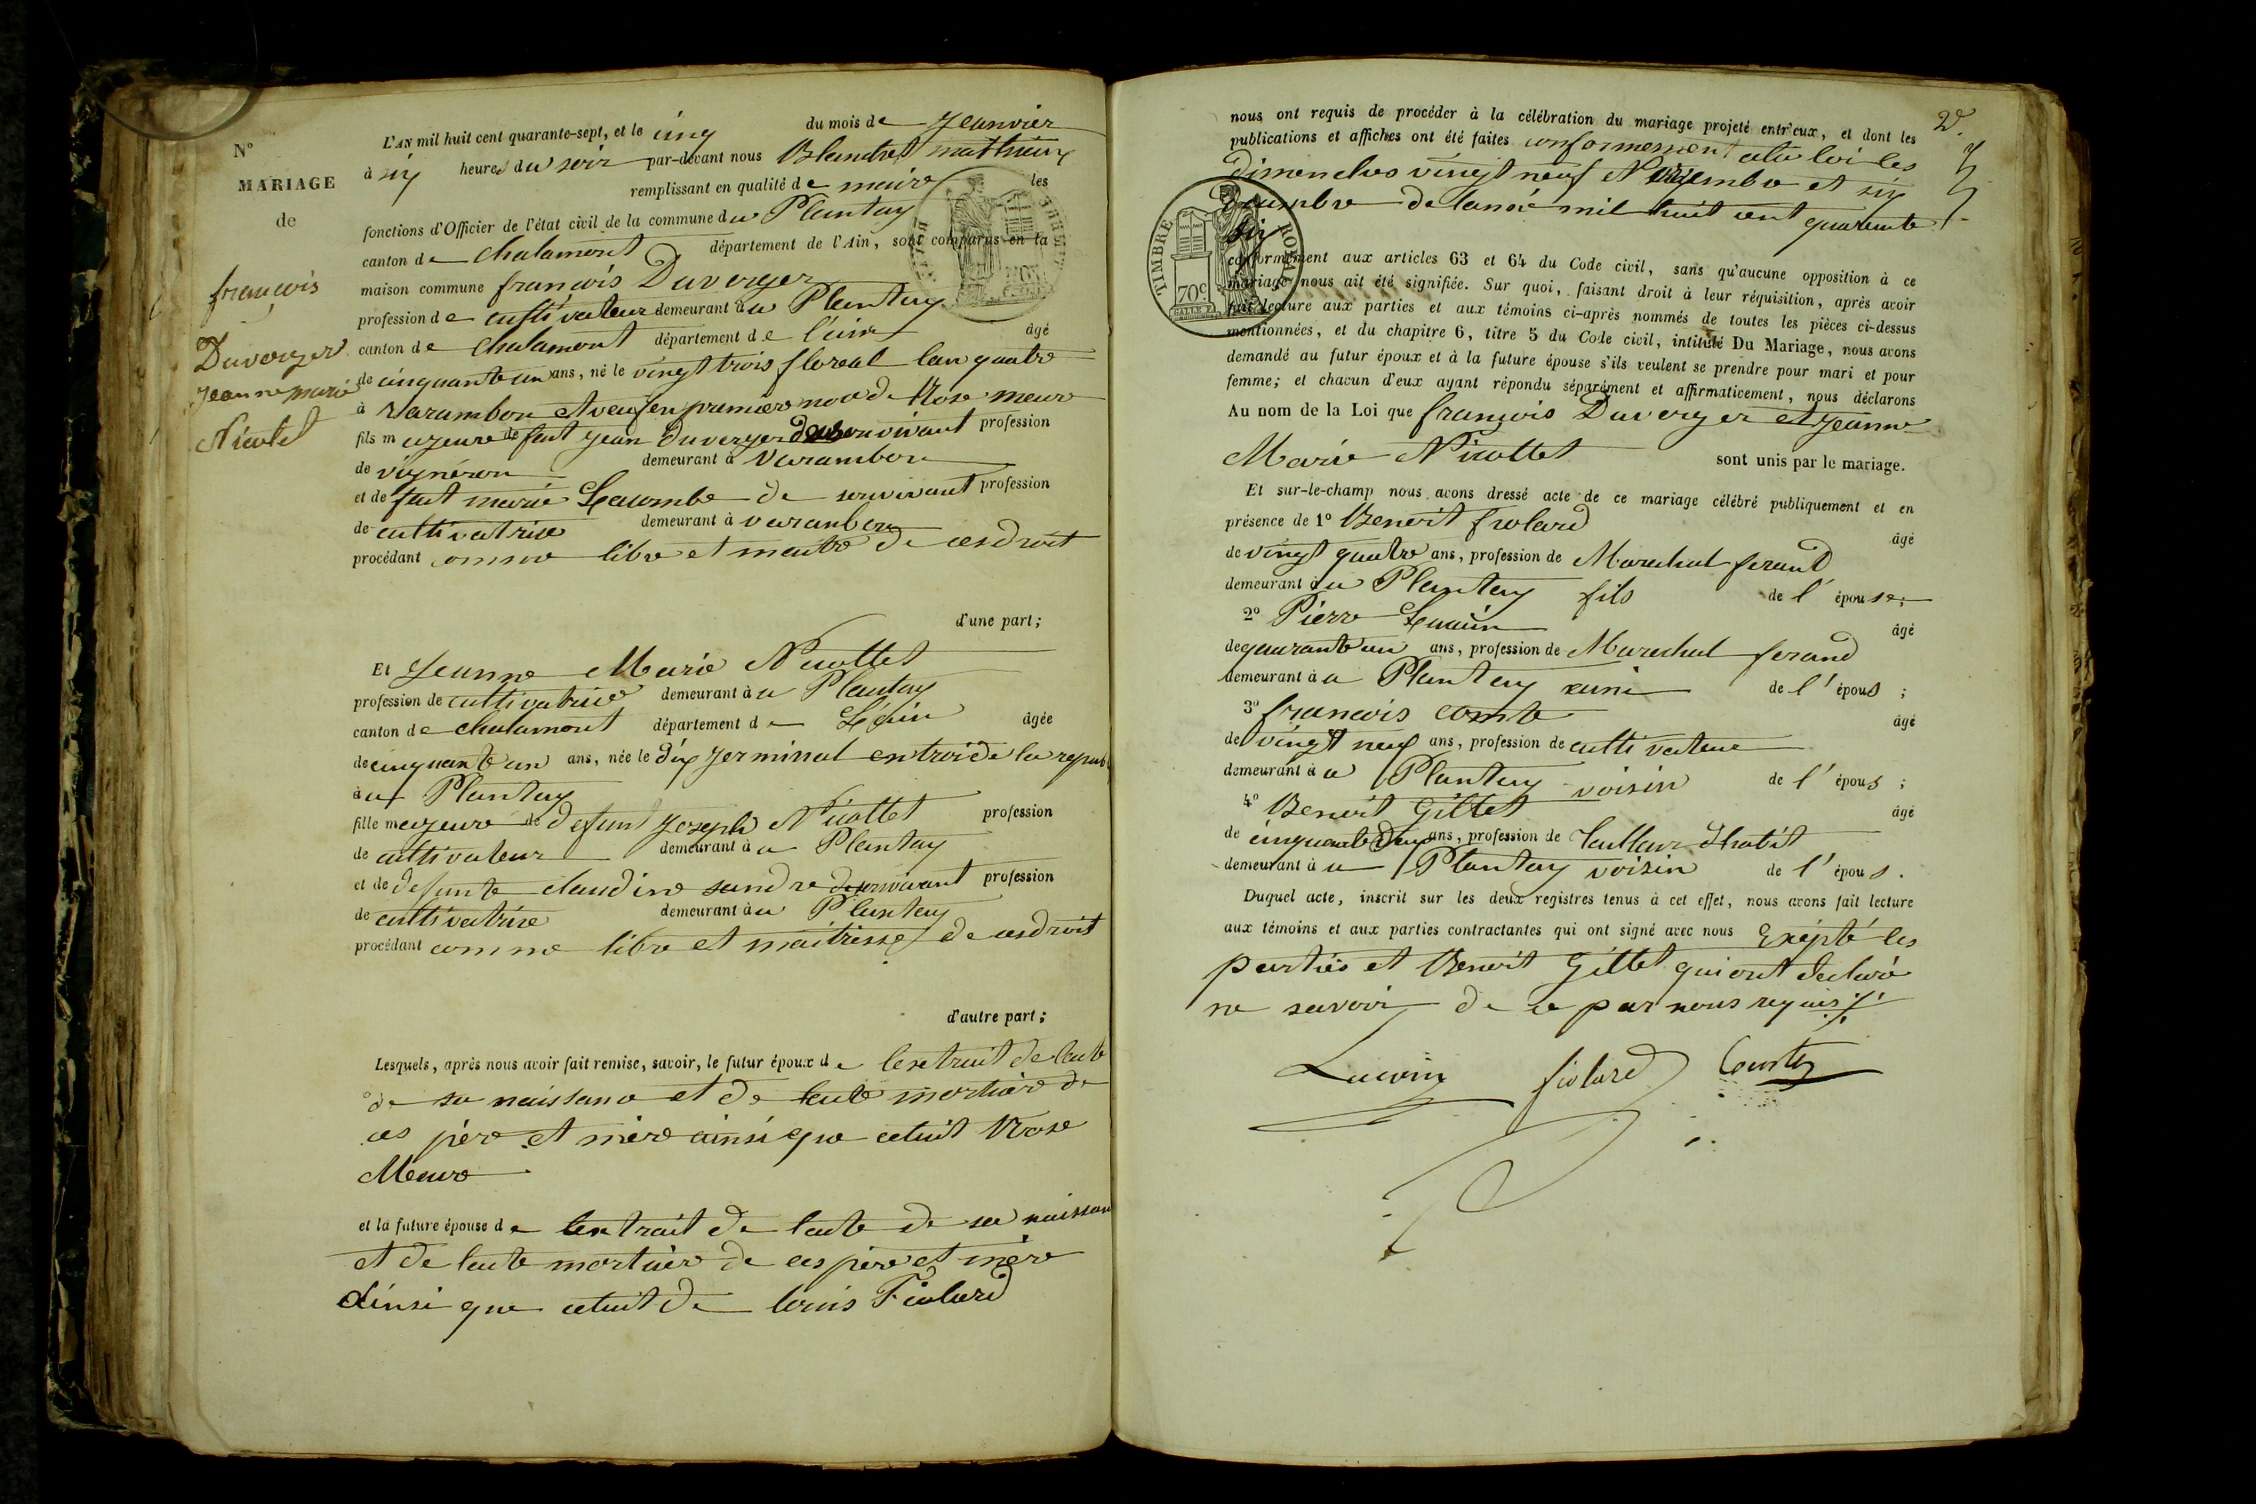 N°
MARIAGE
de
françois
Duverger
Jeanne marie
Nicolet
L'AN mil huit cent quarante-sept, et le cinq du mois de Jeanvier
à six heures du soir par-devant nous Blanchet mathieux
remplissant en qualité de maire les
fonctions d'Officier de l'état civil de la commune du Plantay
canton de chalamont département de l'Ain, sont comparus en la
maison commune françois Duverger
profession de cultivateur demeurant au Plantay
canton de chalamont département de l'ain âgé
de cinquante un ans, né le vingt trois floreal lan quatre
à varambon et veuf en premiere noce de Rose meure
fils majeure de feut Jean Duverger de son vivant profession
de vigneron demeurant à Varambon
et de feut marie Lacombe de sonvivant profession
de cultivatrice demeurant à varambon
procédant comme libre et maitre de cesdroit
d'une part;
Et Jeanne Marie Nicollet
profession de cultivatrice demeurant à u Plantay
canton de chalamont département de L'ain âgée
de cinquante un ans, née le dix germinal en troi de la republ
à u Plantay
fille majeure de defunt Joseph Nicollet profession
de cultivateur demeurant à u Plantay
et de defunte claudine sandre de sonvivant profession
de cultivatrice demeurant à u Plantay
procédant comme libre et maitresse de cesdroit
d'autre part;
Lesquels, après nous avoir fait remise, savoir, le futur époux de lextrait de lacte
de sa naissance et de lacte mortuaire de
ces père et mère ainsi que celuit Rose
Meure
et la future épouse de lextrait de lacte de sa naissan
et de lacte mortuère de ces père et mère
Ainsi que celuit de louis Fiolard
2e.
nous ont requis de procéder à la célébration du mariage projeté entr'eux, et dont les
publications et affiches ont été faites conformement ala loi les
dimenches vingt neuf Novembre et six
Décembre de lanée mil huit cent quarante
six
conformément aux articles 63 et 64 du Code civil, sans qu'aucune opposition à ce
mariage nous ait été signifiée. Sur quoi, faisant droit à leur réquisition, après avoir
fait lecture aux parties et aux témoins ci-après nommés de toutes les pièces ci-dessus
mentionnées, et du chapitre 6, titre 5 du Code civil, intitulé Du Mariage, nous avons
demandé au futur époux et à la future épouse s'ils veulent se prendre pour mari et pour
femme; et chacun d'eux ayant répondu séparément et affirmativement, nous déclarons
Au nom de la Loi que françois Duverger et Jeanne
Marie Nicollet sont unis par le mariage.
Et sur-le-champ nous avons dressé acte de ce mariage célébré publiquement et en
présence de 1° Benoit fiolard âgé
de vingt quatre ans, profession de Marechal ferand
demeurant à u Plantay fils de l'épouse;
2° Pierre Lucuin âgé
de quarant'un ans, profession de Marechal ferand
demeurant à u Plantay ami de l'épous;
3° francois comte âgé
de vingt neuf ans, profession de cultivateur
demeurant à u Plantay voisin de l'épous;
4° Benoit Gillet âgé
de cinquante deux ans, profession de tailleur d'habit
demeurant à u Plantay voisin de l'épous.
Duquel acte, inscrit sur les deux registres tenus à cet effet, nous avons fait lecture
aux témoins et aux parties contractantes qui ont signé avec nous Exépté les
parties et Benoit Gillet qui ont declaré
ne savoir de ce par nous requis
fiolard Comte
TIMBRE ROYAL
70c